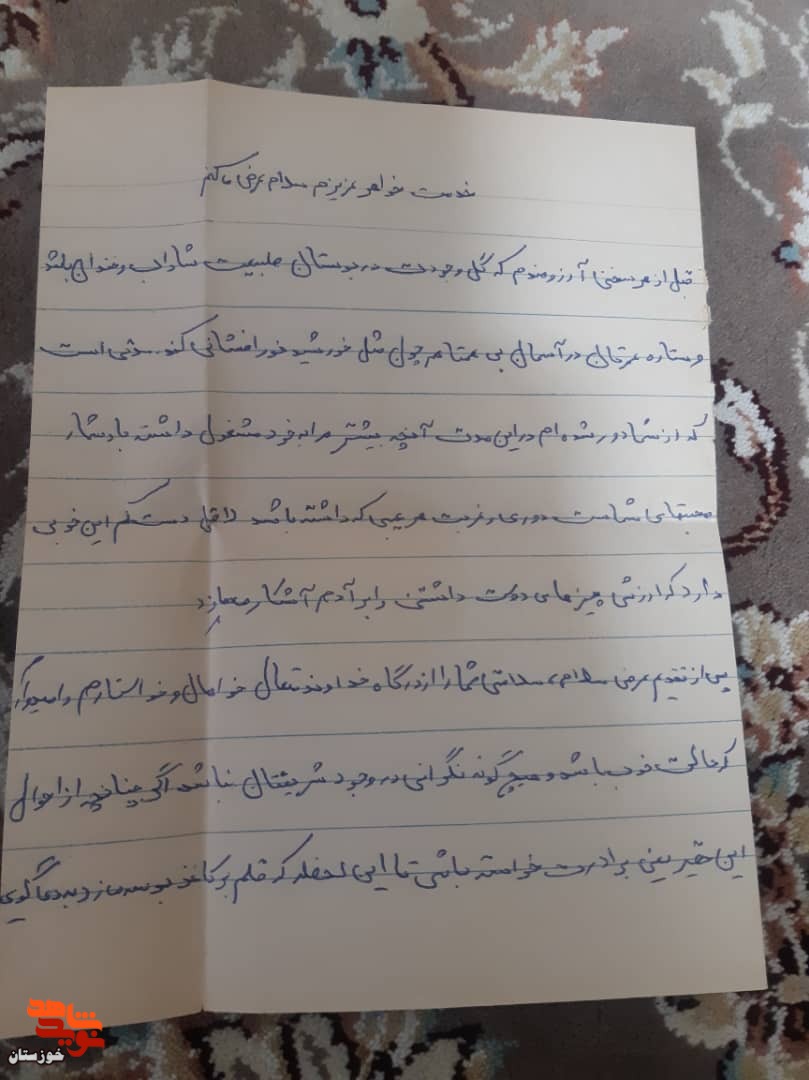 خدمت خواهر عزیزم سلام عرض می‌کنم
قبل از هر سخنی آرزومندم که گل وجودت در بوستان طبیعت شاداب و خندان باشد
و ستاره عرفان در آسمان بی همتا هم چون مثل خورشید نورافشانی کند. مدتی است
که از شما دور شده ام در این مدت آنچه بیشتر مرا به خود مشغول داشته یاد شما و
محبتهای شماست دوری و غربت هر عیبی که داشته باشد لااقل دست کم این خوبی
دارد که ارزش چیزهای دوست داشتنی را بر آدم آشکار میسازد
پس از تقدیم عرض سلام، سلامتی شما را از درگاه خداوند متعال خواهان و خواستارم و امیدوارم
که حالت خوب باشد و هیچ گونه نگرانی در وجود شریفتان نباشد اگر چنانچه از احوال
این حقیر یعنی برادرت خواسته باشی تا این لحظه که قلم بر کاغذ بوسه میزند به دعاگویی
نوید شاهد
خوزستان